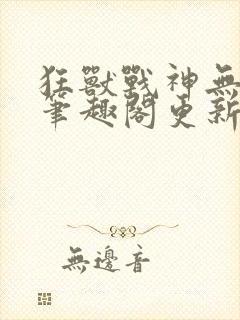 狂獸戰神無
筆趣閣更新
無邊音